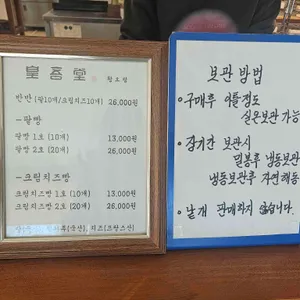 皇喜堂
반반 (팥10개/크림치즈10개) 26,000원
-팥빵
팥빵 1호 (10개) 13,000원
팥빵 2호 (20개) 26,000원
-크림치즈빵
크림치즈빵 1호 (10개) 13,000원
크림치즈빵 2호 (20개) 26,000원
보관 방법
• 구매후 이틀정도
실온보관 가능
• 장기간 보관시
밀봉후 냉동보관
냉동보관후 자연해동
• 낱개 판매하지 않습니다.